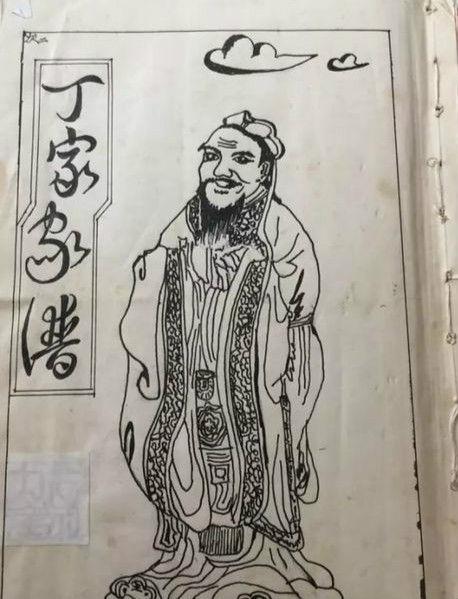 丁家家谱